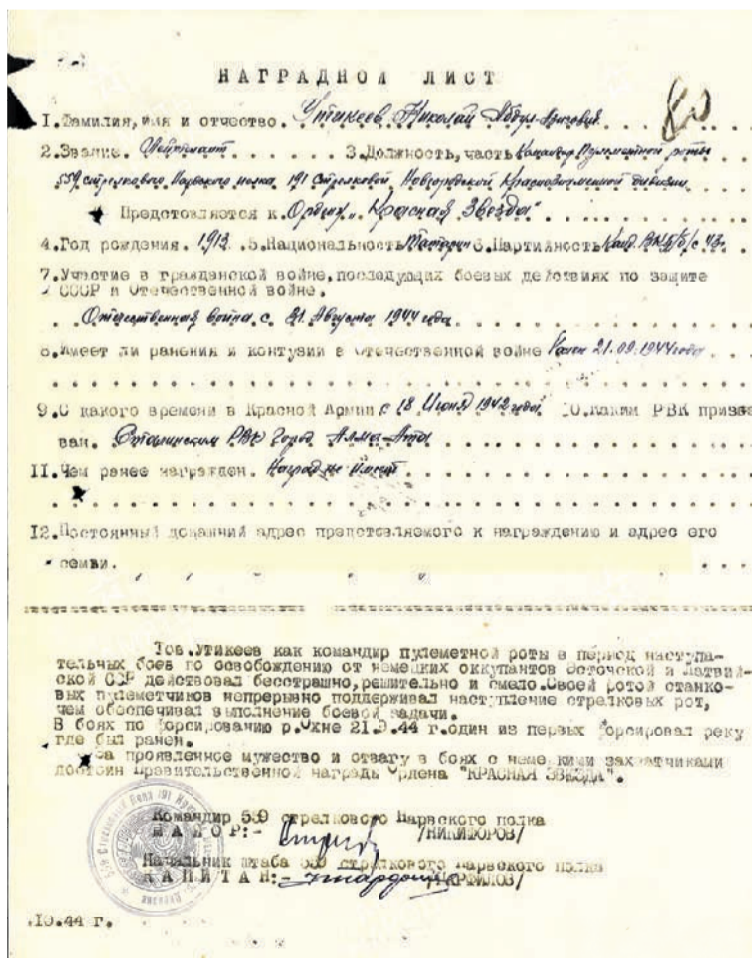 НАГРАДНОЙ ЛИСТ
80
1.Фамилия,имя и отчество. Утикеев Николай Абдул-
2.Звание. Лейтенант . . . . . . . . 3.Должность,часть Командир Пулеметной роты
559 стрелкового Нарвского полка 191 Стрелковой Новгородской Краснознаменной дивизии
Предстовляются к. Ордену „Красная Звезда" . . . . . . . . .
4.Год рождения. 1913. .5.Национальность Татарин 6.Партийность Канд. ВКП/б/ с 43г.
7.Участие в гражданской войне,последующих боевых действиях по защите
СССР и Отечественной войне.
. . Отечественная война с 31 Августа 1944 года . . . . . . . .
8.Имеет ли ранения и контузии в отечественной войне Ранен 21.09.1944 года . . .
. . . . . . . . . . . . . . . . . . . . . . . . . . . . . .
9.С какого времени в Красной Армии с 18 Июня 1942 года. 10.Каким РВК призва
ван. Сталинским РВК город Алма-Ата . . . . . . . . . . .
11.Чем ранее награжден. Наград не имеет . . . . . . . . . . .
. . . . . . . . . . . . . . . . . . . . . . . . . . . . . .
12.Постоянный домашний адрес предстовляемого к награждению и адрес его
семьи. . . .
Тов.Утикеев как командир пулеметной роты в период наступа-
тельных боев по освобождению от немецких оккупантов Эстонской и Латвий-
ской ССР действовал бесстрашно,решительно и смело.Своей ротой станко-
вых пулеметчиков непрерывно поддерживал наступление стрелковых рот,
чем обеспечивал выполнение боевой задачи.
В боях по форсированию р.Охне 21.9.44 г.один из первых форсировал реку
где был ранен.
За проявленное мужество и отвагу в боях с немецкими захватчиками
достоин Правительственной награды Ордена "КРАСНАЯ ЗВЕЗДА".
Командир 559 стрелкового Нарвского полка
МАЙОР:- /НИКИФОРОВ/
Начальник штаба 559 стрелкового Нарвского полка
КАПИТАН:-
.10.44 г.